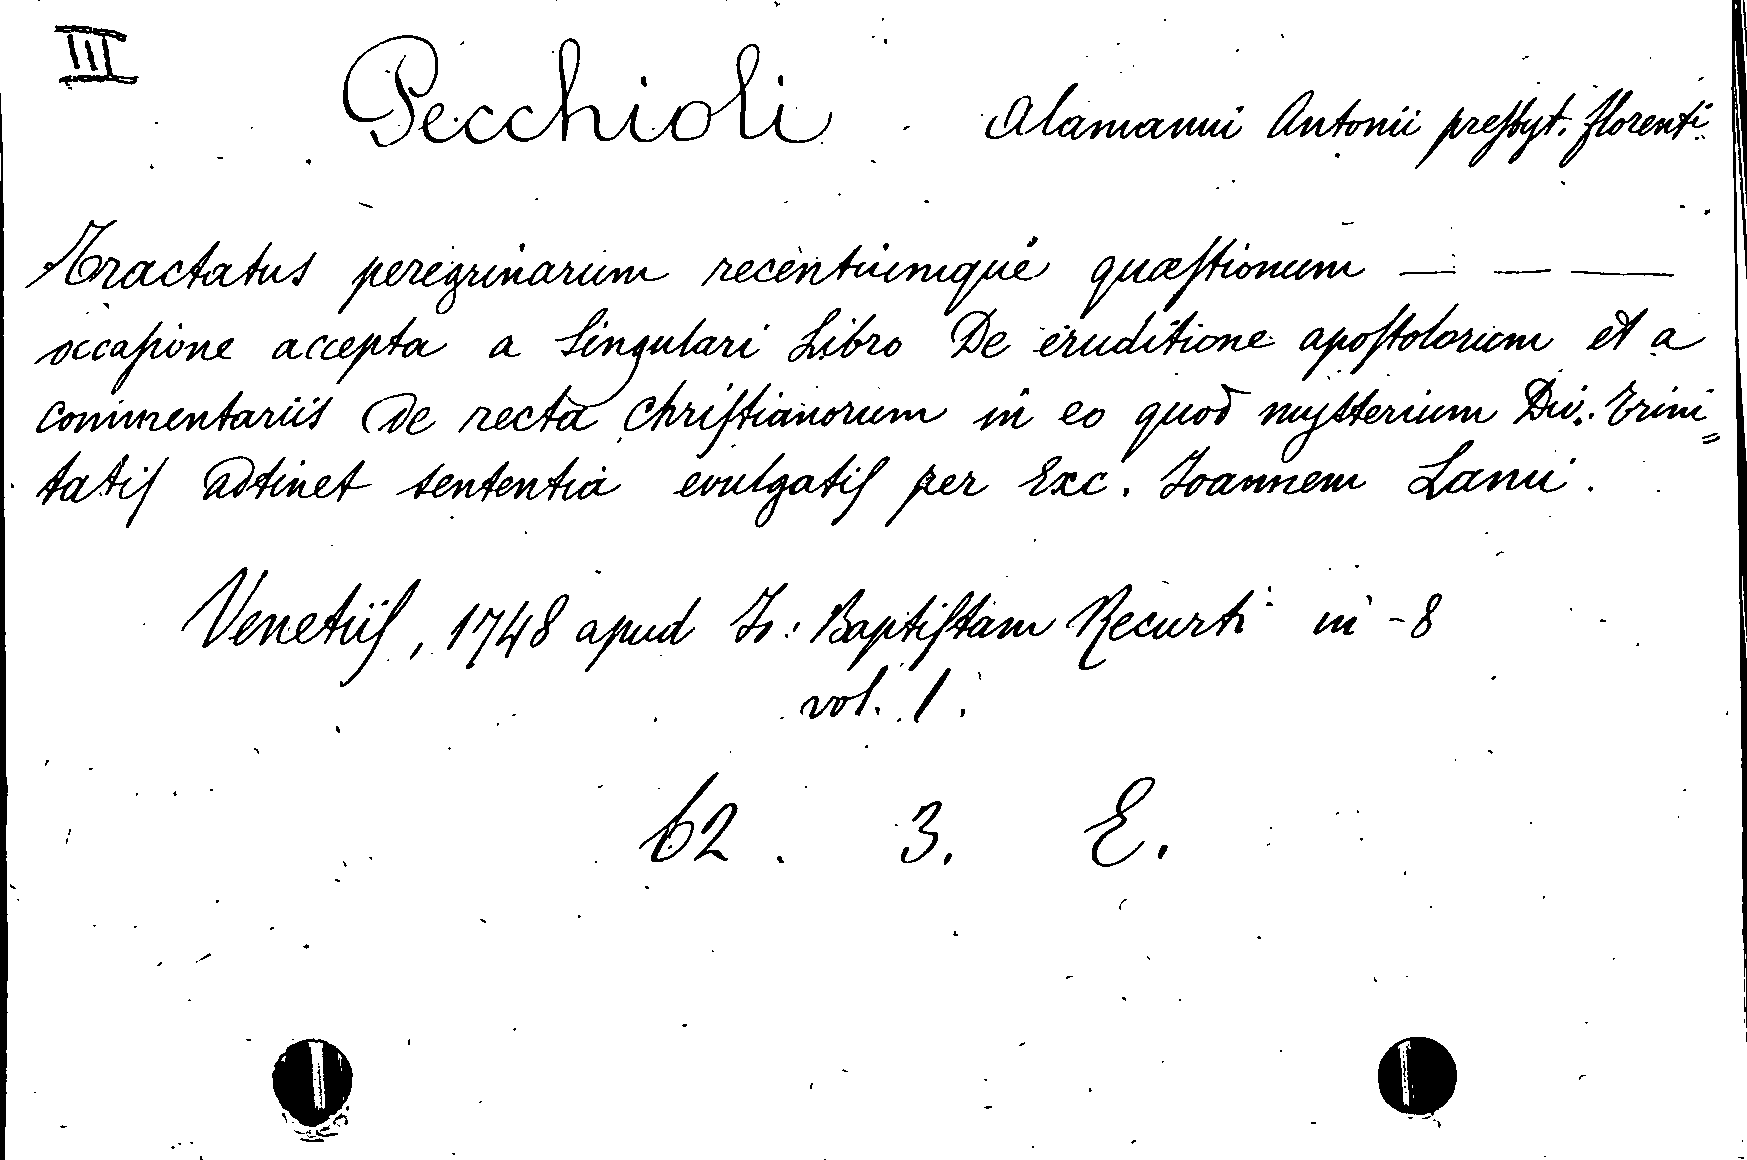 III
Pecchioli Alamanni Antonii preſbyt. florenti
Tractatus peregrinarum recentiumque quæſtionum — — —
occaſione accepta a Singulari Libro De eruditione apoſtolorum et a
commentariis De recta Chriſtianorum in eo quod mysterium Div. Trini=
tatiſ adtinet sententia evulgatiſ per Exc. Joannem Lami.
Venetiiſ, 1748 apud Jo: Baptiſtam Recurti in -8
vol. 1.
62. 3. E.